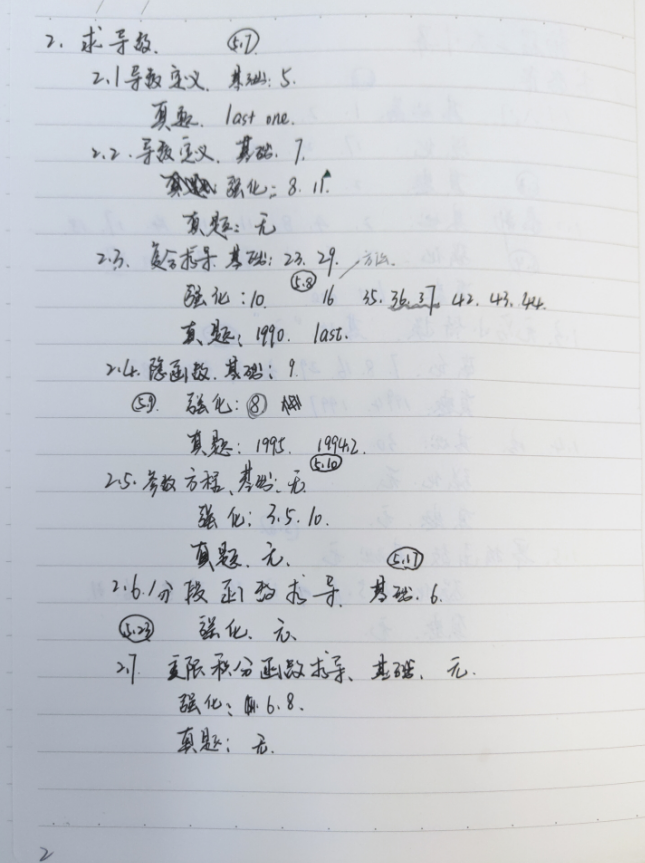 2. 求导数. 5.7
2.1 导数定义. 基础: 5.
真题. last one.
2.2. 导数定义. 基础. 7.
强化: 8. 11.
真题: 无
2.3. 复合求导 基础: 23. 29. 方法.
强化: 10. 5.8 16 35. 36. 37 42. 43. 44.
真题: 1990. last.
2.4. 隐函数. 基础: 9.
5.9 强化: 8
真题: 1995. 1994.2.
5.10
2.5. 参数方程、基础: 无.
强化: 3. 5. 10.
真题. 无. 5.17
2.6. 分段函数求导. 基础. 6.
5.23 强化. 无.
2.7 变限积分函数求导、基础. 无.
强化: 6. 8.
真题: 无.
2